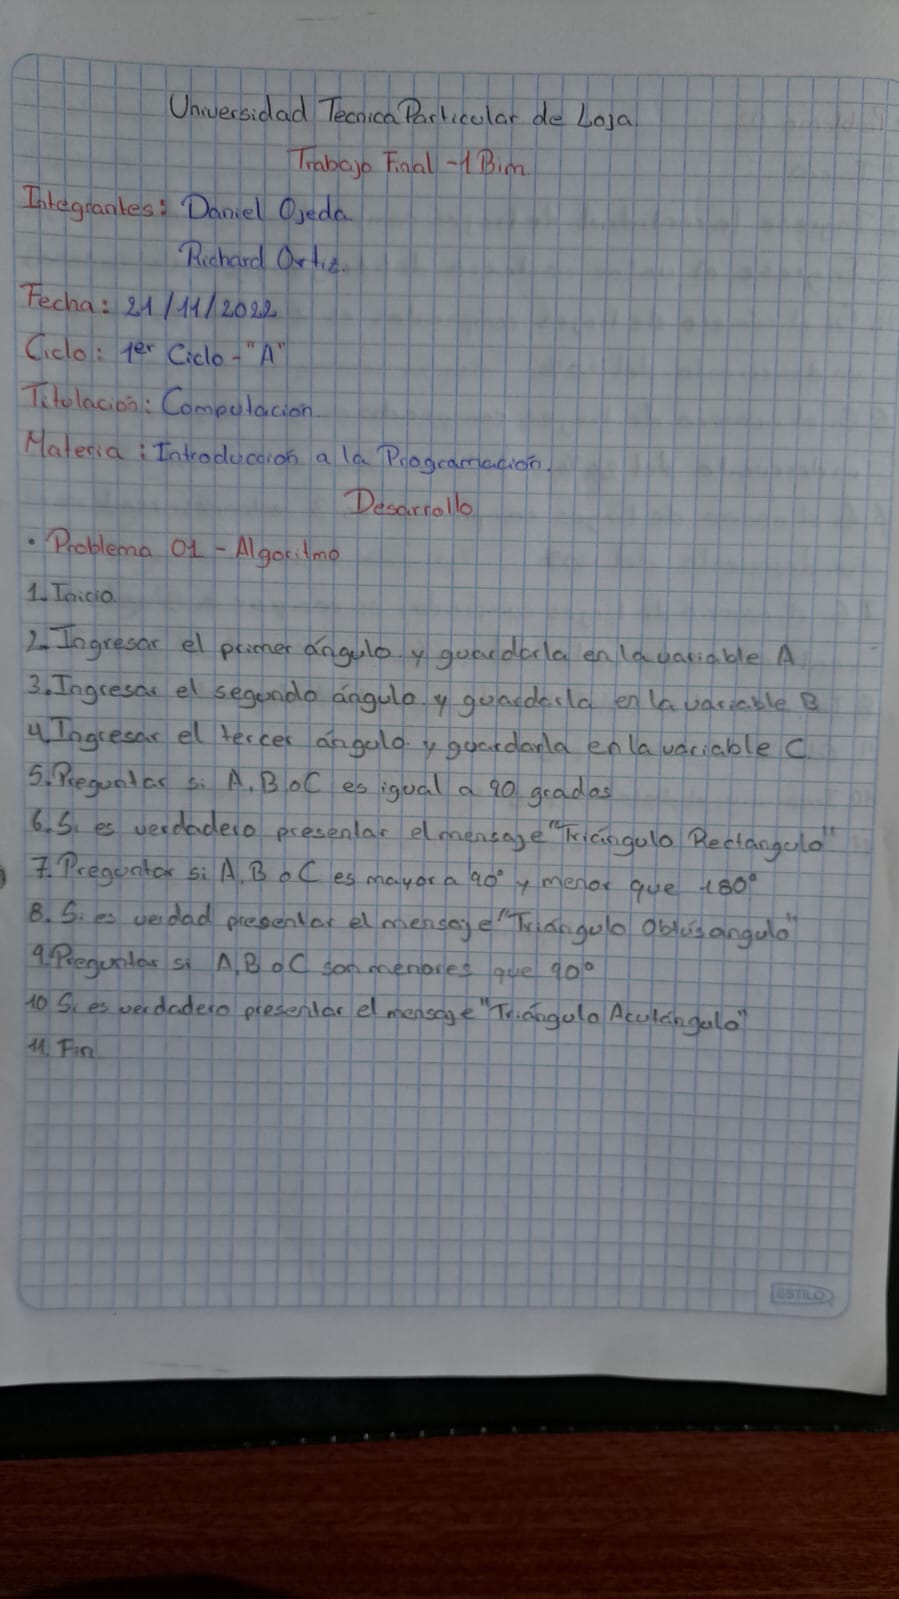 Universidad Tecnica Particular de Loja
Trabajo Final - 1 Bim
Integrantes: Daniel Ojeda
Richard Ortiz.
Fecha: 21/11/2022
Ciclo: 1er Ciclo - "A"
Titulación: Computacion
Materia: Introduccion a la Programación.
Desarrollo
• Problema 01 - Algoritmo
1. Inicio
2. Ingresar el primer ángulo y guardarla en la variable A
3. Ingresar el segundo ángulo y guardarla en la variable B
4. Ingresar el tercer ángulo y guardarla en la variable C
5. Preguntar si A, B o C es igual a 90 grados
6. Si es verdadero presentar el mensaje "Triángulo Rectangulo"
7. Preguntar si A, B o C es mayor a 90° y menor que 180°
8. Si es verdad presentar el mensaje "Triángulo Obtúsangulo"
9. Preguntar si A, B o C son menores que 90°
10 Si es verdadero presentar el mensaje "Triángulo Acutángulo"
11. Fin
ESTILO